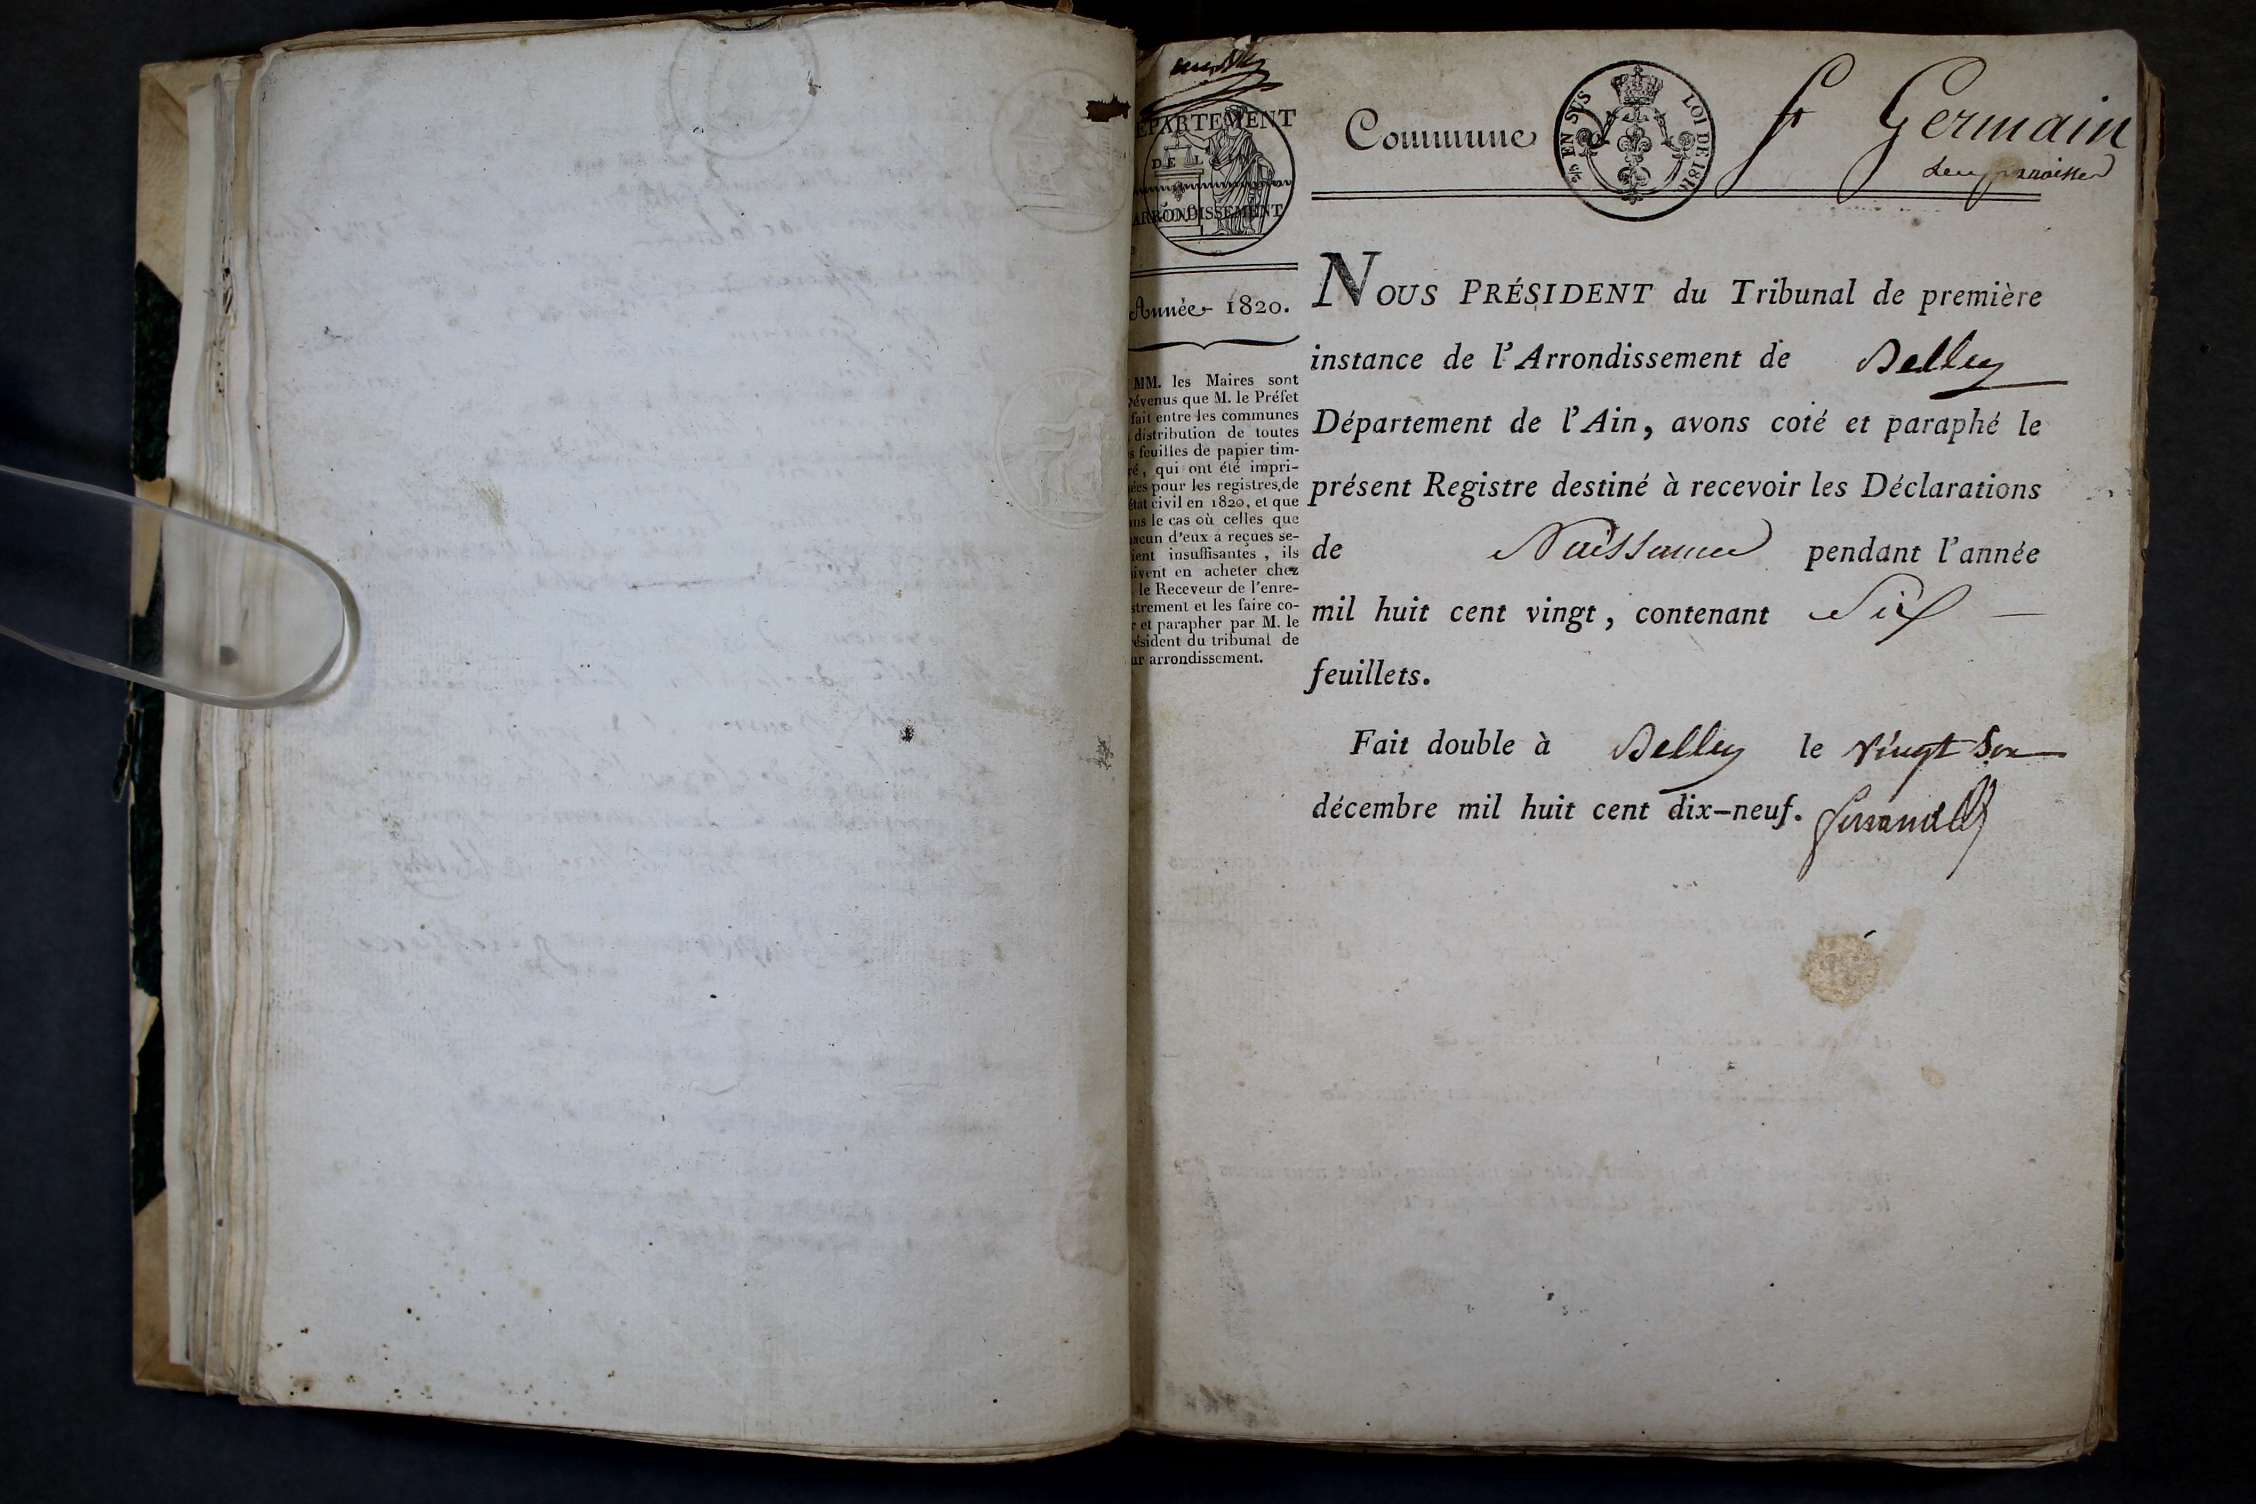 DÉPARTEMENT
DE L'AIN
ARRONDISSEMENT
Année 1820.
MM. les Maires sont
prévenus que M. le Préfet
fait entre les communes
distribution de toutes
feuilles de papier tim-
qui ont été impri-
pour les registres de
état civil en 1820, et que
le cas où celles que
d'eux a reçues se-
insuffisantes, ils
en acheter chez
le Receveur de l'enre-
et les faire co-
et parapher par M. le
du tribunal de
arrondissement.
Commune St Germain
les paroisses
EN SUS LOI DE 1816
NOUS PRÉSIDENT du Tribunal de première
instance de l'Arrondissement de Belley
Département de l'Ain, avons coté et paraphé le
présent Registre destiné à recevoir les Déclarations
de Naissance pendant l'année
mil huit cent vingt, contenant Six
feuillets.
Fait double à Belley le vingt
décembre mil huit cent dix-neuf.